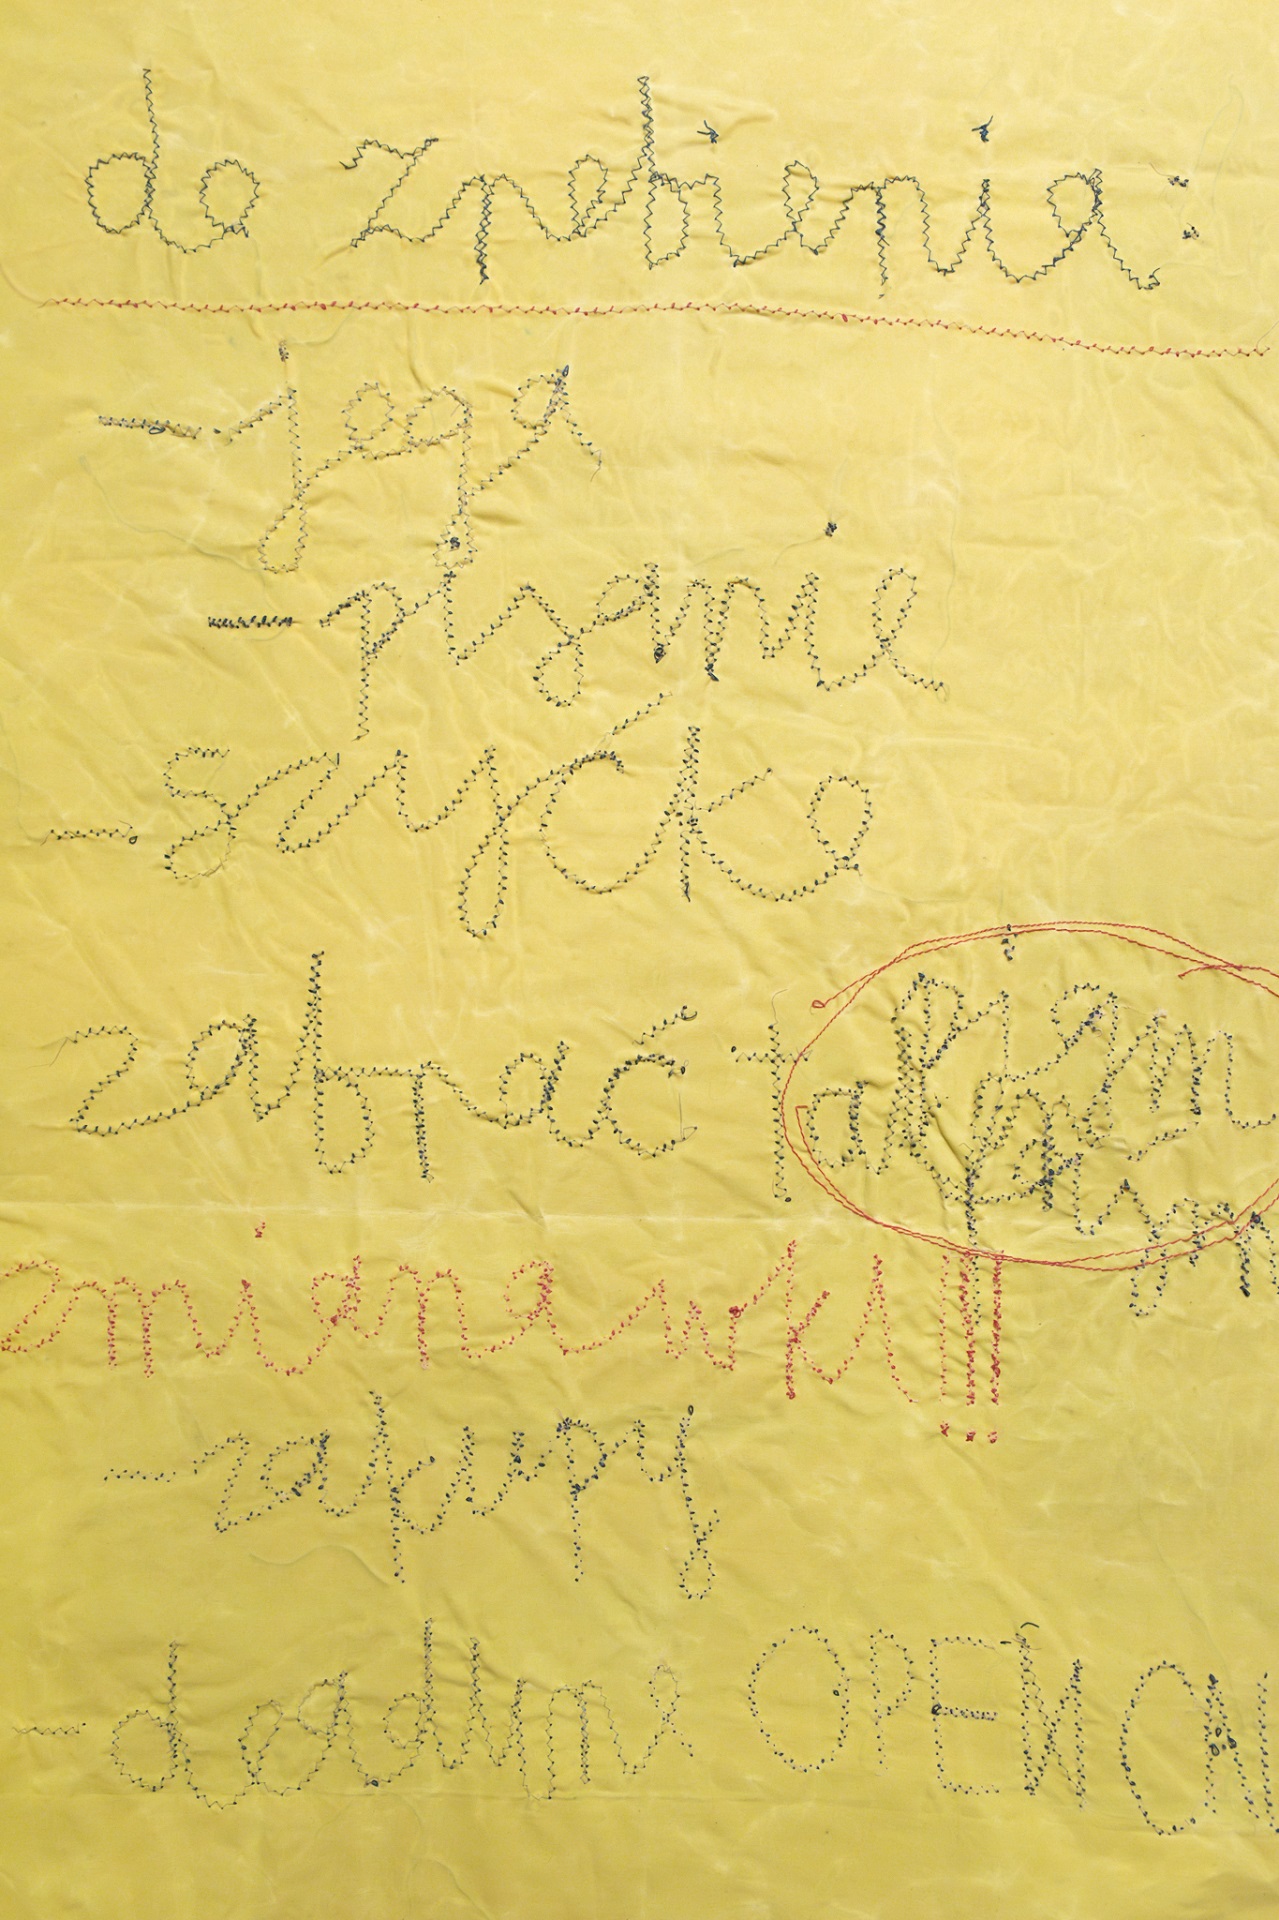 do zrobienia:
- joga
- pisanie
- szycko
zabrać
zmiana wki!!!
- zakupy
- deadline OPEN CALL